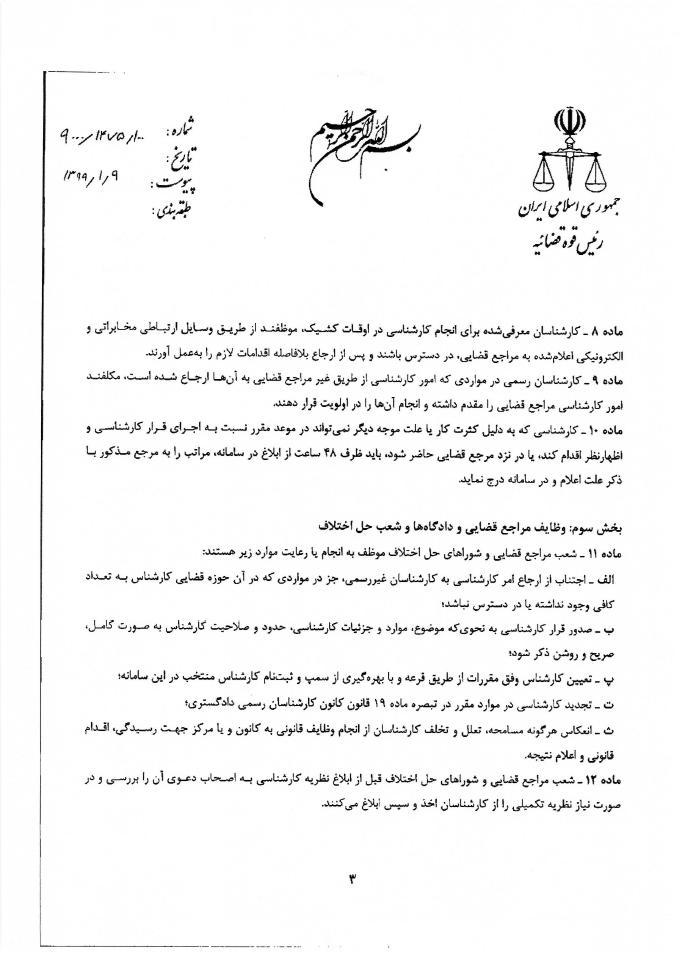 بسم الله الرحمن الرحیم
جمهوری اسلامی ایران
رئیس قوه قضائیه
شماره: ۹۰۰۰/۱۴۷۵/۱۰۰
تاریخ:
۱۳۹۹/۱/۹
پیوست:
طبقه‌بندی:
ماده ۸ ـ کارشناسان معرفی‌شده برای انجام کارشناسی در اوقات کشیک، موظفند از طریق وسایل ارتباطی مخابراتی و
الکترونیکی اعلام‌شده به مراجع قضایی، در دسترس باشند و پس از ارجاع بلافاصله اقدامات لازم را به‌عمل آورند.
ماده ۹ ـ کارشناسان رسمی در مواردی که امور کارشناسی از طریق غیر مراجع قضایی به آن‌ها ارجاع شده است، مکلفند
امور کارشناسی مراجع قضایی را مقدم داشته و انجام آن‌ها را در اولویت قرار دهند.
ماده ۱۰ ـ کارشناسی که به دلیل کثرت کار یا علت موجه دیگر نمی‌تواند در موعد مقرر نسبت به اجرای قرار کارشناسی و
اظهارنظر اقدام کند، یا در نزد مرجع قضایی حاضر شود، باید ظرف ۴۸ ساعت از ابلاغ در سامانه، مراتب را به مرجع مذکور با
ذکر علت اعلام و در سامانه درج نماید.
بخش سوم: وظایف مراجع قضایی و دادگاه‌ها و شعب حل اختلاف
ماده ۱۱ ـ شعب مراجع قضایی و شوراهای حل اختلاف موظف به انجام یا رعایت موارد زیر هستند:
الف ـ اجتناب از ارجاع امر کارشناسی به کارشناسان غیررسمی، جز در مواردی که در آن حوزه قضایی کارشناس به تعداد
کافی وجود نداشته یا در دسترس نباشد؛
ب ـ صدور قرار کارشناسی به نحوی‌که موضوع، موارد و جزئیات کارشناسی، حدود و صلاحیت کارشناس به صورت کامل،
صریح و روشن ذکر شود؛
پ ـ تعیین کارشناس وفق مقررات از طریق قرعه و با بهره‌گیری از سمپ و ثبت‌نام کارشناس منتخب در این سامانه؛
ت ـ تجدید کارشناسی در موارد مقرر در تبصره ماده ۱۹ قانون کانون کارشناسان رسمی دادگستری؛
ث ـ انعکاس هرگونه مسامحه، تعلل و تخلف کارشناسان از انجام وظایف قانونی به کانون و یا مرکز جهت رسیدگی، اقدام
قانونی و اعلام نتیجه.
ماده ۱۲ ـ شعب مراجع قضایی و شوراهای حل اختلاف قبل از ابلاغ نظریه کارشناسی به اصحاب دعوی آن را بررسی و در
صورت نیاز نظریه تکمیلی را از کارشناسان اخذ و سپس ابلاغ می‌کنند.
۳